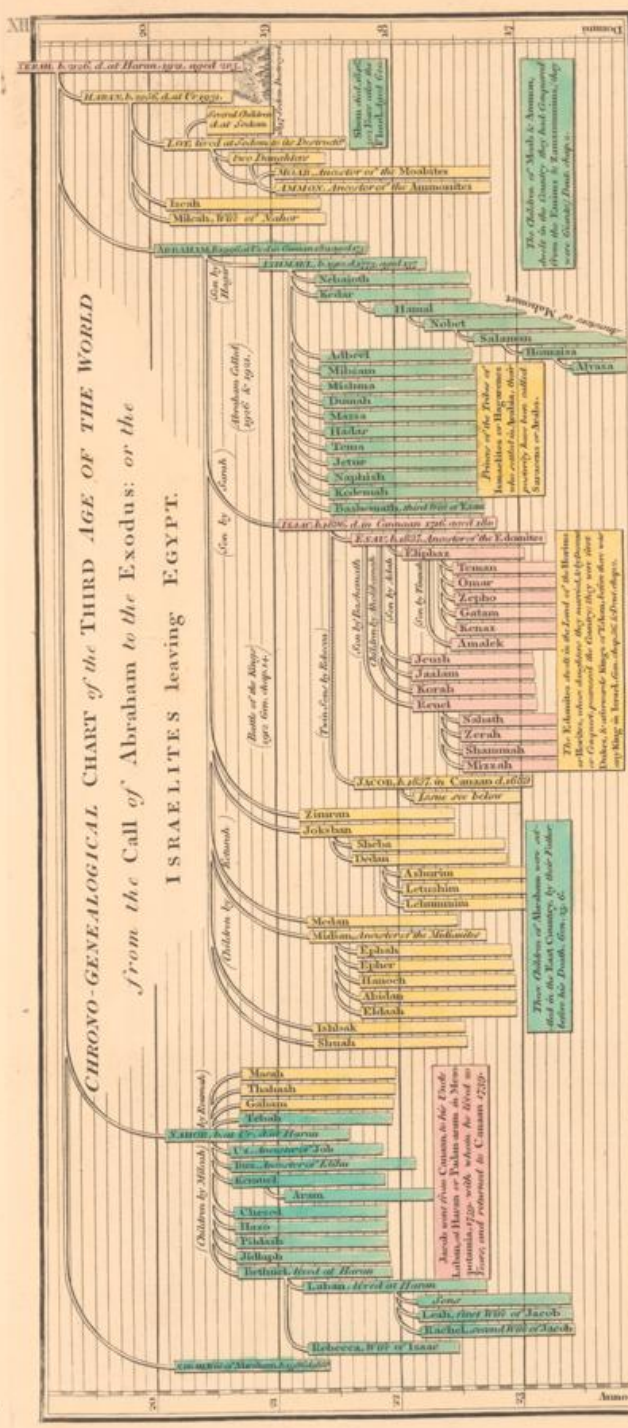 XII
20
19
18
17
Domini
TERAH, b. 2126. d. at Haran, 1921. aged 205.
HARAN, b. 2056. d. at Ur 1931.
Several Children
d. at Sodom
LOT, lived at Sodom to its Destructn
two Daughters
MOAB, Ancestor of the Moabites
AMMON, Ancestor of the Ammonites
Iscah
Milcah, Wife of Nahor
Shem died 1846,
Years after the
Flood, Aged 600
The Children of Moab & Ammon,
dwelt in the Country they had Conquered
from the Emims & Zamzummims, they
were Giants; Deut. chap. 2.
CHRONO-GENEALOGICAL CHART of the THIRD AGE OF THE WORLD
from the Call of Abraham to the Exodus: or the
ISRAELITES leaving EGYPT.
ABRAHAM, in Canaan aged 175
Son by Hagar
ISHMAEL, b. 1910 d. 1773, aged 137
Nebajoth
Kedar
Hamal
Nobet
Salaman
Homaiza
Alyasa
Ancestor of Mahomet
Adbeel
Mibsam
Mishma
Dumah
Massa
Hadar
Tema
Jetur
Naphish
Kedemah
Bashemath, third Wife of Esau
Princes of the Tribes of
Ismaelites or Hagarenes
who settled in Arabia, their
posterity have been called
Saracens or Arabs.
Abraham Called
1926 & 1921.
Son by Sarah
ISAAC, b. 1896. d. in Canaan 1716. aged 180
ESAU, b. 1837. Ancestor of the Edomites
Eliphaz
Teman
Omar
Zepho
Gatam
Kenaz
Amalek
Jeush
Jaalam
Korah
Reuel
Nahath
Zerah
Shammah
Mizzah
Son by Bashemath
Children by Aholibamah
Son by Adah
Son by Timnah
Twin Sons by Rebecca
JACOB, b. 1837. in Canaan d. 1689
Issue see below
The Edomites dwelt in the Land of the Horims
or Horites, whose daughters they married, & by Descent
or Conquest, possessed the Country; they were first
Dukes, & afterwards Kings of Edom, before there was
any King in Israel. Gen. chap. 36. & Deut. chap. 2.
Battle of the Kings
1912. Gen. chap. 14.
Children by Keturah
Zimran
Jokshan
Sheba
Dedan
Ashurim
Letushim
Leummim
Medan
Midian, Ancestor of the Midianites
Ephah
Epher
Hanoch
Abidan
Eldaah
Ishbak
Shuah
These Children of Abraham were set-
tled in the East Country, by their Father
before his Death, Gen. 25. 6.
by Reumah
Macah
Thahash
Gaham
Tebah
NAHOR, b. at Ur, d. at Haran
Children by Milcah
Uz, Ancestor of Job
Buz, Ancestor of Elihu
Kemuel
Aram
Chesed
Hazo
Pildash
Jidlaph
Bethuel, lived at Haran
Laban, lived at Haran
Sons
Leah, first Wife of Jacob
Rachel, second Wife of Jacob
Rebecca, Wife of Isaac
Jacob went from Canaan, to his Uncle
Laban, at Haran or Padan-aram in Meso
potamia, 1759. with whom he lived 20
Years, and returned to Canaan 1739.
Wife of Abraham
20
21
22
23
Anno